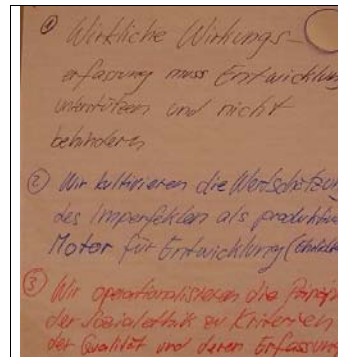 ① Wirkliche Wirkungs-
erfassung muss Entwicklung
unterstützen und nicht
behindern
② Wir kultivieren die Wertschätzun
des Imperfekten als produktive
Motor für Entwicklung
③ Wir operationalisieren die Prinzip
der Sozialethik zu Kriterien
der Qualität und deren Erfassung